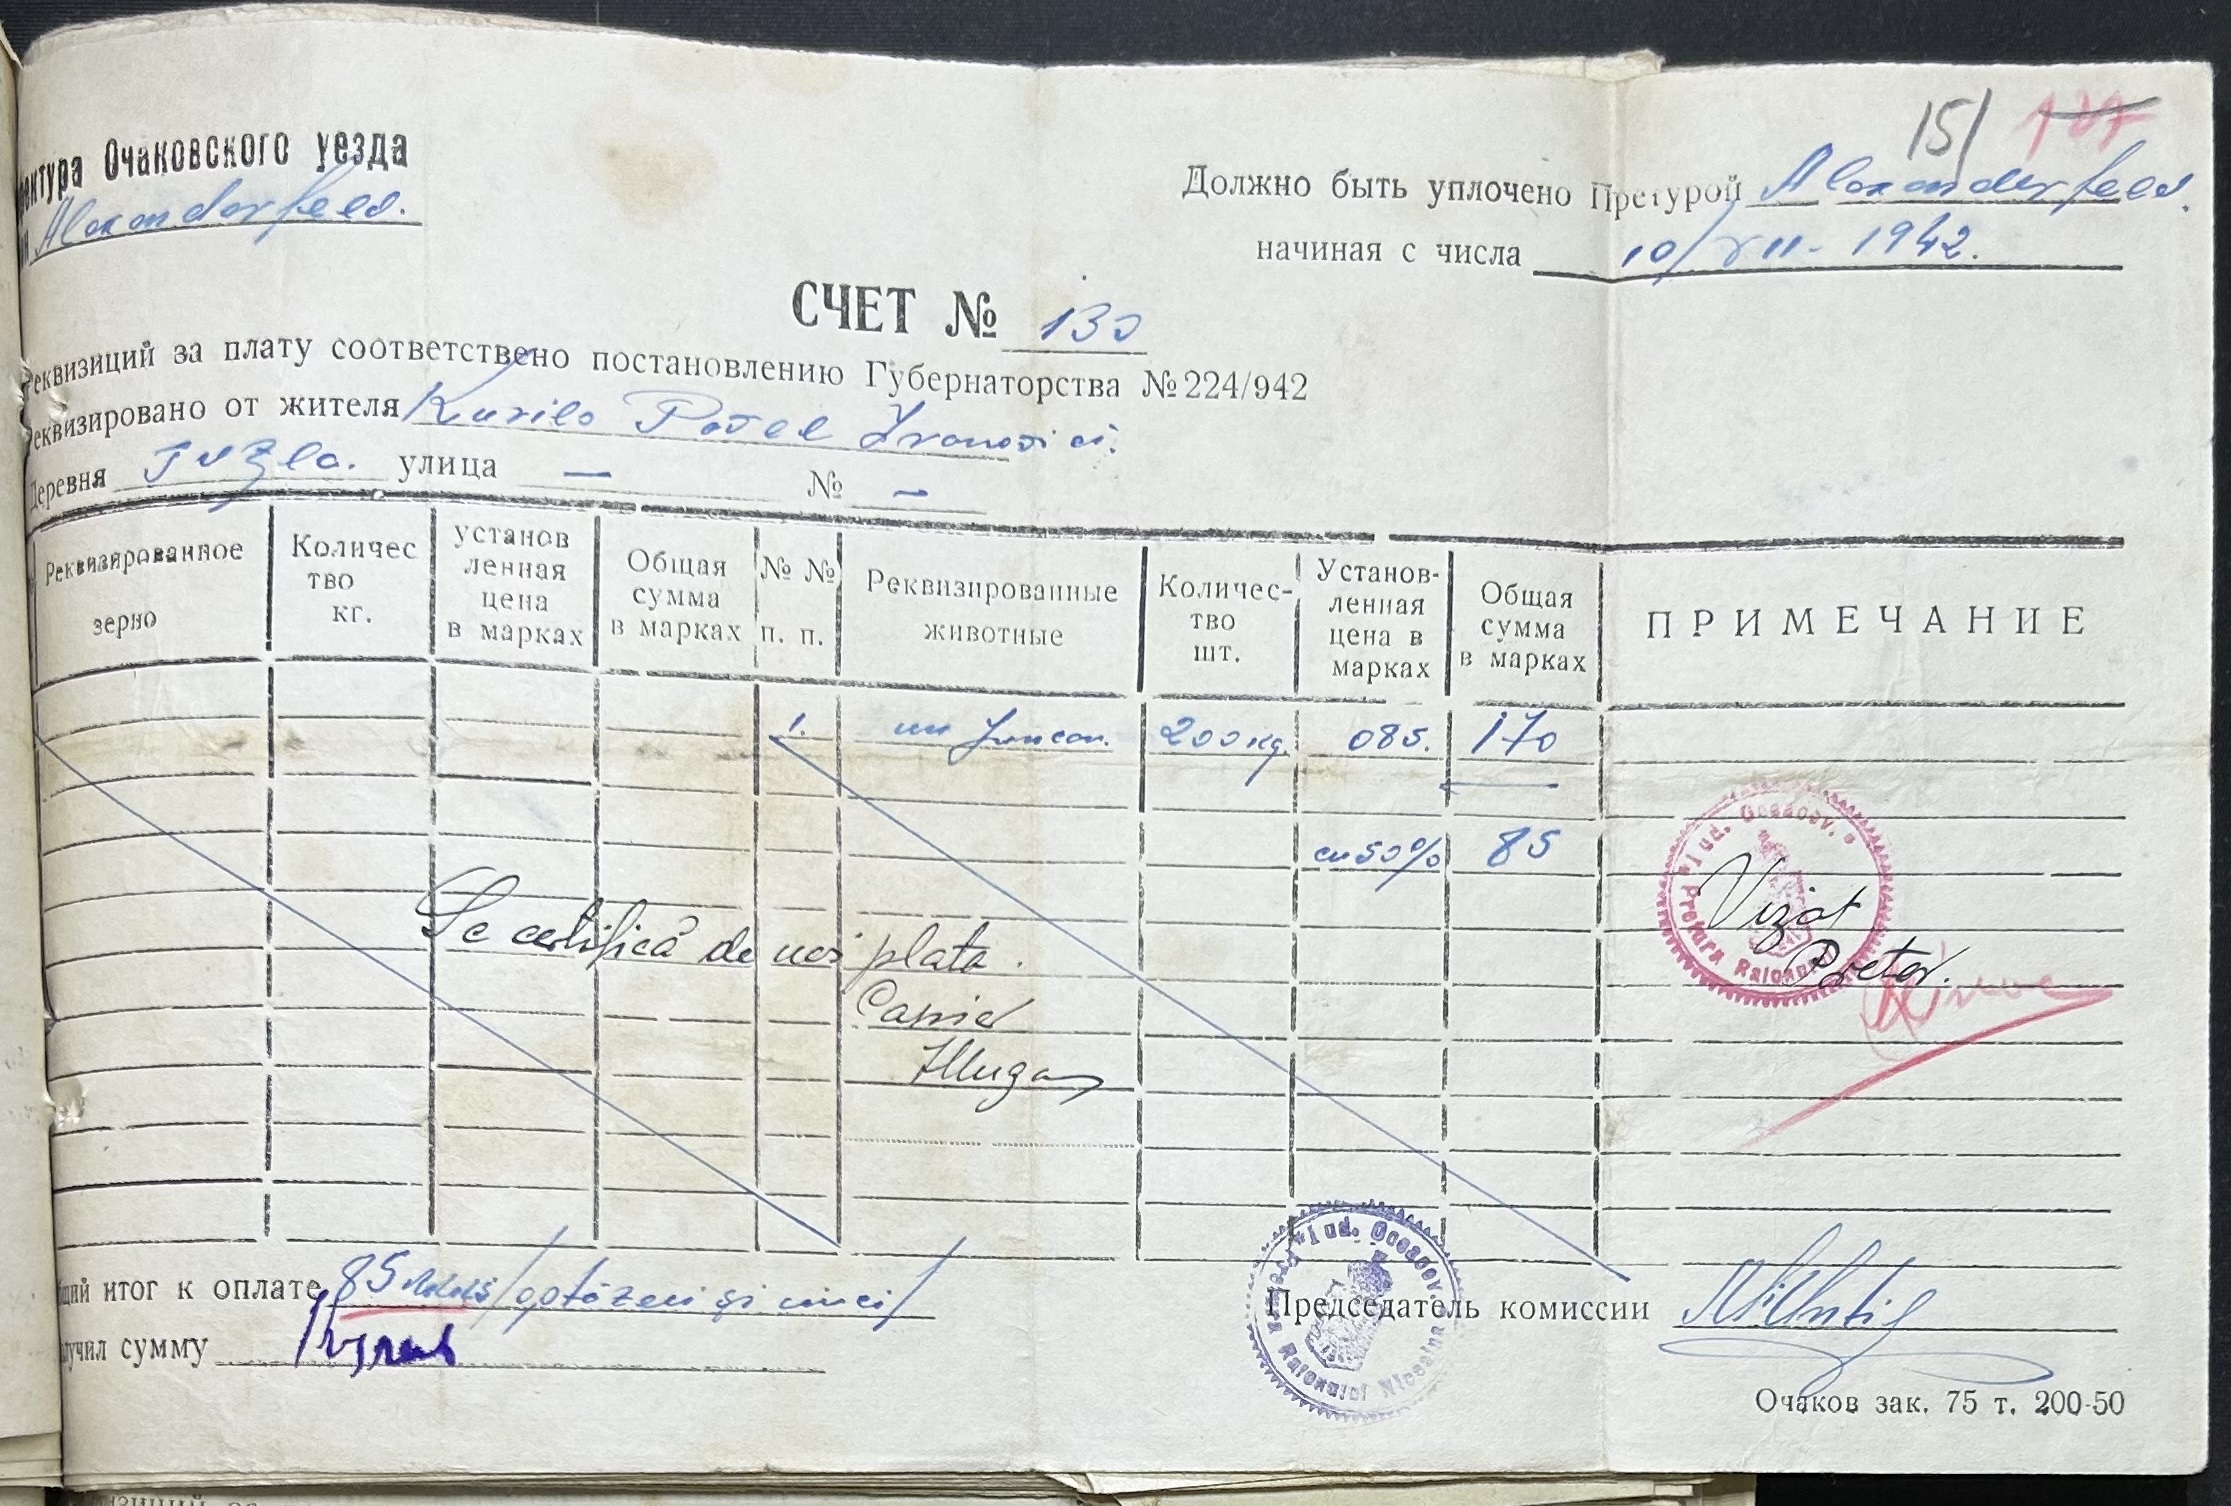 15/ 127
ректура Очаковского уезда
Alexanderfeld.
Должно быть уплочено Претурой Alexanderfeld.
начиная с числа 10/XII - 1942.
СЧЕТ № 130
Реквизиций за плату соответствено постановлению Губернаторства № 224/942
Реквизировано от жителя Kurilo Pavel Ivanovici.
Деревня Tuzla. улица — № —
Реквизированное зерно
Количес тво кг.
установ ленная цена в марках
Общая сумма в марках
№ № п. п.
Реквизированные животные
Количес- тво шт.
Установ- ленная цена в марках
Общая сумма в марках
ПРИМЕЧАНИЕ
1. un juncan. 200 kg. 085. 170
cu 50% 85
Se certifică de noi plata.
Vizat
Pretor.
Jud. Oceacov. Pretura Raionului
бщий итог к оплате 85 /optzeci și cinci/
лучил сумму
Председатель комиссии
Jud. Oceacov. Pretura Raionului
Очаков зак. 75 т. 200-50